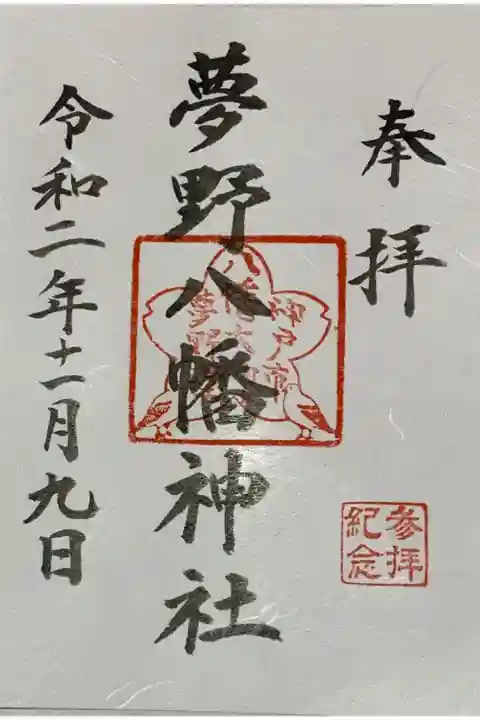 奉拝
参拝
紀念
夢野八幡神社
神戸市
夢野
八幡
令和二年十一月九日